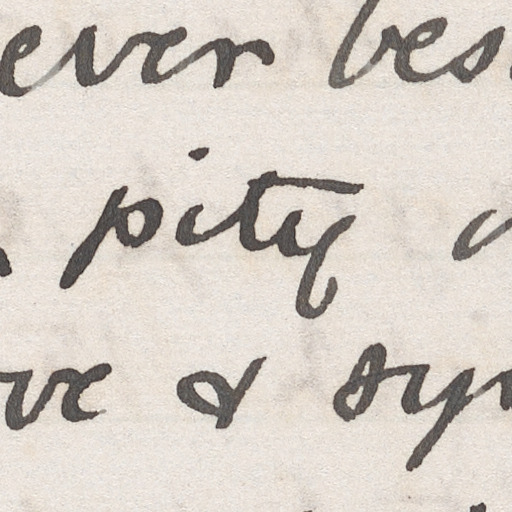 ever bes
pity
ve & sy